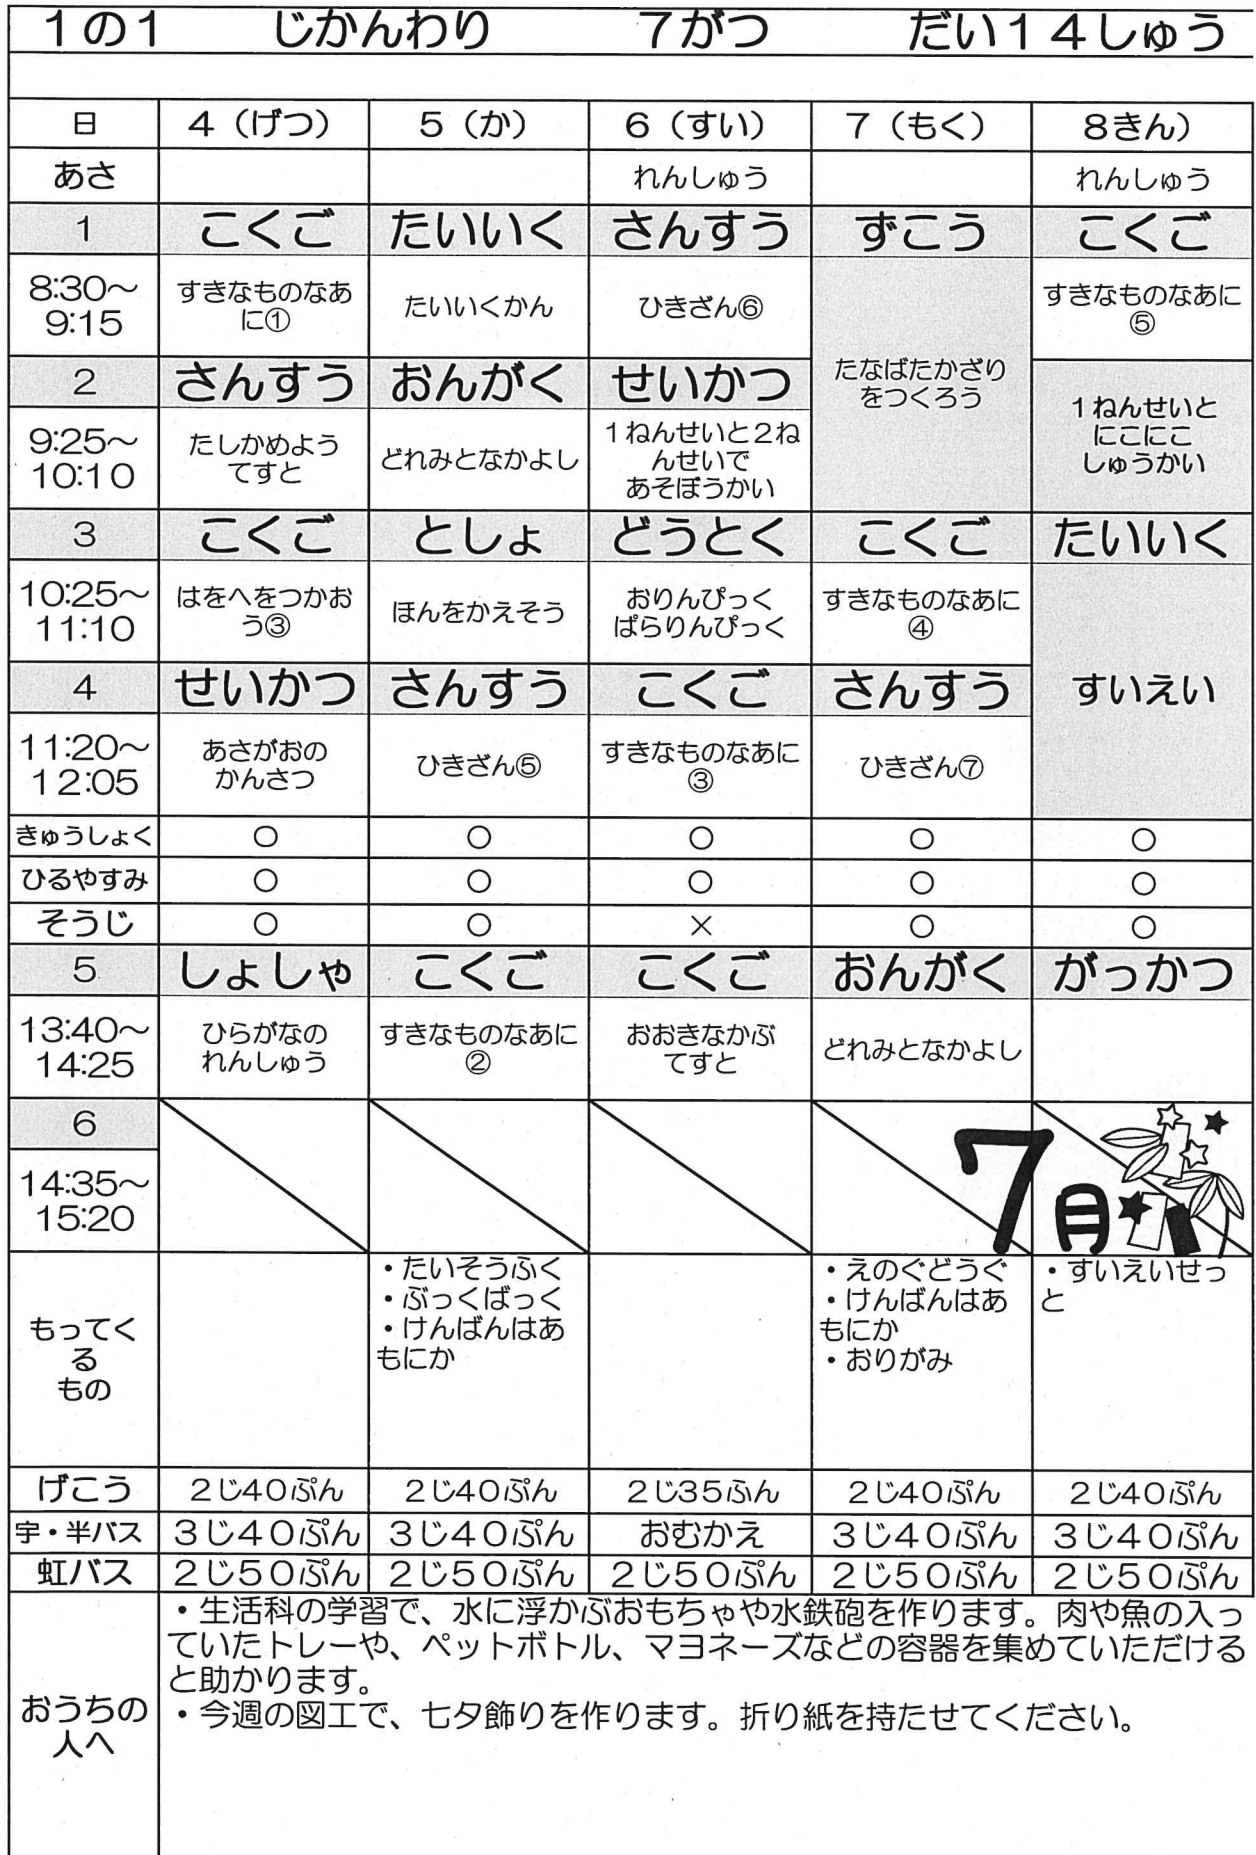 1の1 じかんわり 7がつ だい14しゅう
日 4(げつ) 5(か) 6(すい) 7(もく) 8きん)
あさ れんしゅう れんしゅう
1 こくご たいいく さんすう ずこう こくご
8:30~
9:15
すきなものなあ
に①
たいいくかん
ひきざん⑥
たなばたかざり
をつくろう
すきなものなあに
⑤
2 さんすう おんがく せいかつ
9:25~
10:10
たしかめよう
てすと
どれみとなかよし
1ねんせいと2ね
んせいで
あそぼうかい
1ねんせいと
にこにこ
しゅうかい
3 こくご としょ どうとく こくご たいいく
10:25~
11:10
はをへをつかお
う③
ほんをかえそう
おりんぴっく
ぱらりんぴっく
すきなものなあに
④
すいえい
4 せいかつ さんすう こくご さんすう
11:20~
12:05
あさがおの
かんさつ
ひきざん⑤
すきなものなあに
③
ひきざん⑦
きゅうしょく ○ ○ ○ ○ ○
ひるやすみ ○ ○ ○ ○ ○
そうじ ○ ○ × ○ ○
5 しょしゃ こくご こくご おんがく がっかつ
13:40~
14:25
ひらがなの
れんしゅう
すきなものなあに
②
おおきなかぶ
てすと
どれみとなかよし
6
14:35~
15:20
7月
もってく
る
もの
・たいそうふく
・ぶっくばっく
・けんばんはあ
もにか
・えのぐどうぐ
・けんばんはあ
もにか
・おりがみ
・すいえいせっ
と
げこう 2じ40ぷん 2じ40ぷん 2じ35ふん 2じ40ぷん 2じ40ぷん
宇・半バス 3じ40ぷん 3じ40ぷん おむかえ 3じ40ぷん 3じ40ぷん
虹バス 2じ50ぷん 2じ50ぷん 2じ50ぷん 2じ50ぷん 2じ50ぷん
おうちの
人へ
・生活科の学習で、水に浮かぶおもちゃや水鉄砲を作ります。肉や魚の入っ
ていたトレーや、ペットボトル、マヨネーズなどの容器を集めていただける
と助かります。
・今週の図工で、七夕飾りを作ります。折り紙を持たせてください。